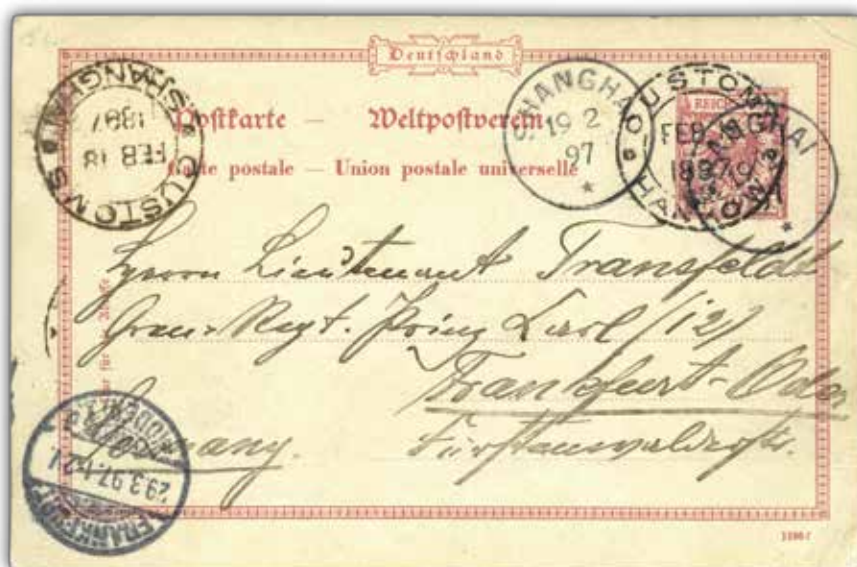 Deutschland
Postkarte – Weltpostverein
Carte postale – Union postale universelle
CUSTOMS SHANGHAI
FEB 18
1897
SHANGHAI
19 2
97
CUSTOMS HANKOW
FEB
1897
REICHS
SHANGHAI
Herrn Lieutenant Transfeldt
Gren. Regt. Prinz Carl (12)
Frankfurt-Oder
Germany. Fürstenwalderstr.
nur für die
FRANKFURT
(ODER)
29.3.97.